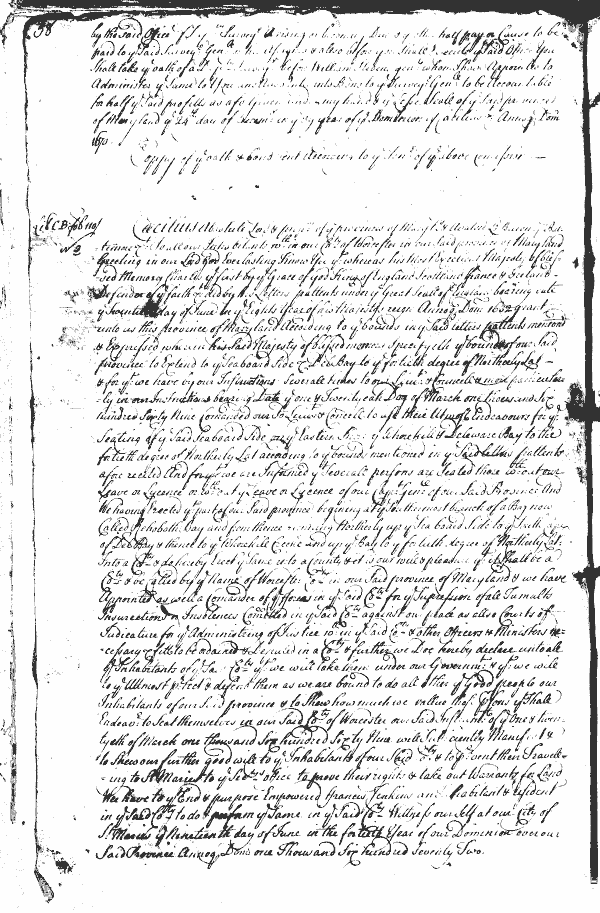 38
by the said Office of y Survey arising or becoming Due by the half pay or Cause to be
paid to y Said Survey Gen & also before you shall Execute y Said Office you
Shall take y oath of a before William gen whom I have Appointed to
Administer y Same to You and to y Survey Gen to be accountable
for half y Said profitts as afd Given und my hand & y Lesser Seale of y Said province
of Maryland y 24th day of in y year of y Dominion of Cæcilius &c Annoq Dom
1671
Coppy of y oath & bond sent according to y of y above
Lib CD fol
No 3
Cæcilius Absolute Lord & of y provinces of Maryld & Avalon Ld Baron of Bal-
timore &c To all our Inhabitants wth in our Coty of Worcester in our Said province of Maryland
Greeting in our Lord God Everlasting Know Yee y whereas his Most Excelent Majesty of bles-
sed Memory Charles y first by y Grace of God King of England Scotland france & Ireland
Defendor of y faith &c did by his Letters pattents under y Great Seale of England bearing date
y Twentieth day of June in y Eighth Year of his Majestys reign Annoq Dom 1632 grant
unto us this province of Maryland According to y bounds in y Said letters pattents mentiond
& Expressed wherein his Said Majesty of blessed memory Specifyeth y bounds of our Said
province to Extend to y Seaboard Side & Del Bay to y fortieth degree of Northerly Lat
& for y we have by our Instructions Severall times to our Lieut & Councell & more particular-
ly in our Instructions bearing Date y one & Twentyeth Day of March one thousand Six
hundred Sixty Nine Comanded our Sd Lieut & Councell to use their Utmost Endeavours for y
Seating of y Said Seaboard Side on y Eastern Shore y Whorekill & Delaware Bay to the
fortieth degree of Northerly Lat according to y bounds mentioned in y Said Letters pattents
afore recited And for y we are Informed y Severall persons are Seated there wth out our
Leave or Lycence or wth out y Leave or Lycence of our Capt Genll of our Said Province And
We having Erected y part of our Said province begining at y Southermost branch of a Bay now
Called Rehoboth Bay and from thence running Northerly up y Seaboard Side to y South
of Del Bay & thence to y Whorekill Creeke and up y Bay to y fortieth degree of Northerly Lat.
Into a Coty & do hereby Erect y Same into a County & it is our will & pleasure y it Shall be a
Coty & be called by y Name of Worcester Coty in our Said province of Maryland & we have
Appointed as well a Comander of y forces in y Said Coty for y Supression of all Tumults
Insurrections or Insolences Comitted in y Said Coty against our peace as also Courts of
Judicature for y Administring of Justice wth in y Said Coty & other Officers & Ministers ne-
cessary & fitt to be ordained & Deputed in a Coty & further we Doe hereby declare unto all
y Inhabitants of y Sd Coty y we will take them under our Governmt & y we will
to y Uttmost protect & defend them as we are bound to do all other y Good people our
Inhabitants of our Said province & to Shew how much we vallue those persons y Shall
Endeavr to Seat themselves in our Said Coty of Worcester our Said Instruct of y One & twen-
tyeth of March one thousand Six hundred Sixty Nine will Sufficiently Manifest &
to Shew our further good will to y Inhabitants of our Said Coty & to prevent their Travell-
ing to St Maries to y Secry office to prove their rights & take out Warrants for Land
We have to y End & purpose Impowered francis Jenkins an Inhabitant & resident
in y Said Coty to do & perform y Same in y Said Coty Wittness our Self at our City of
St Maries y Nineteenth day of June in the fortieth Year of our Dominion over our
Said Province Annoq Dom one Thousand Six hundred Seventy Two.